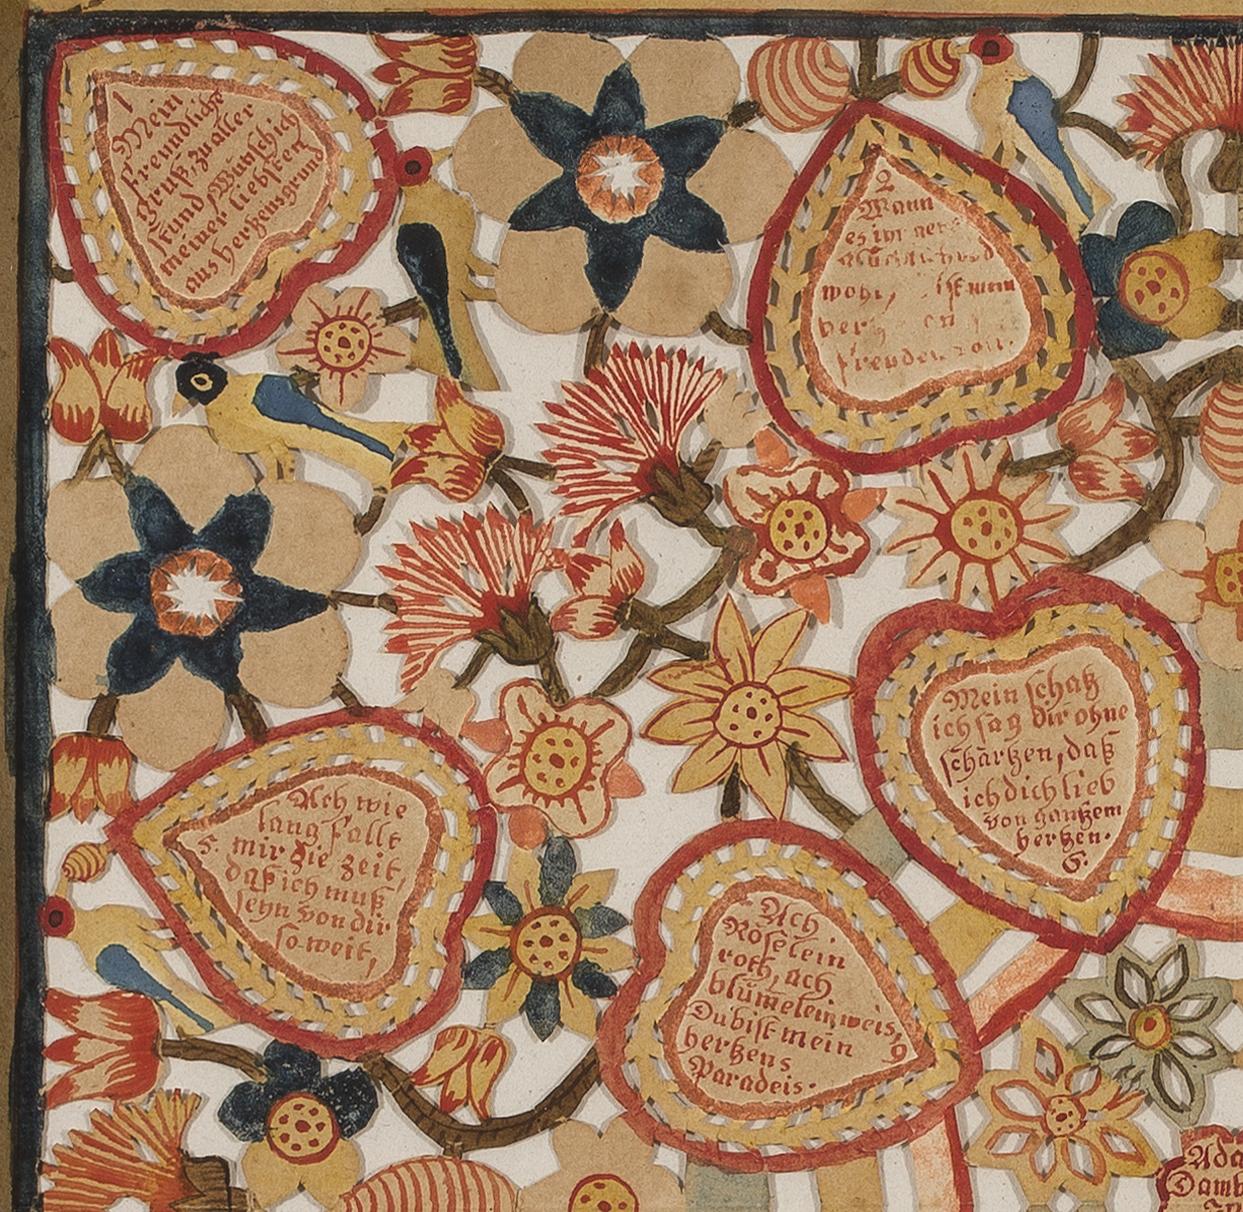 1
Mein
freundliche
gruß, zu aller
stund, Wünsch ich
meiner liebsten
aus hertzensgrund
2
Wann
es ihr
wohl, ist mein
freuden voll.
Mein schatz
ich sag dir ohne
schärtzen, daß
ich dich lieb
von gantzem
hertzen.
6.
Ach wie
lang fällt
5. mir die zeit,
daß ich muß
seyn von dir
so weit,
Ach
Röselein
roth, ach
blümelein weis,
Du bist mein 9
hertzens
Paradeis.